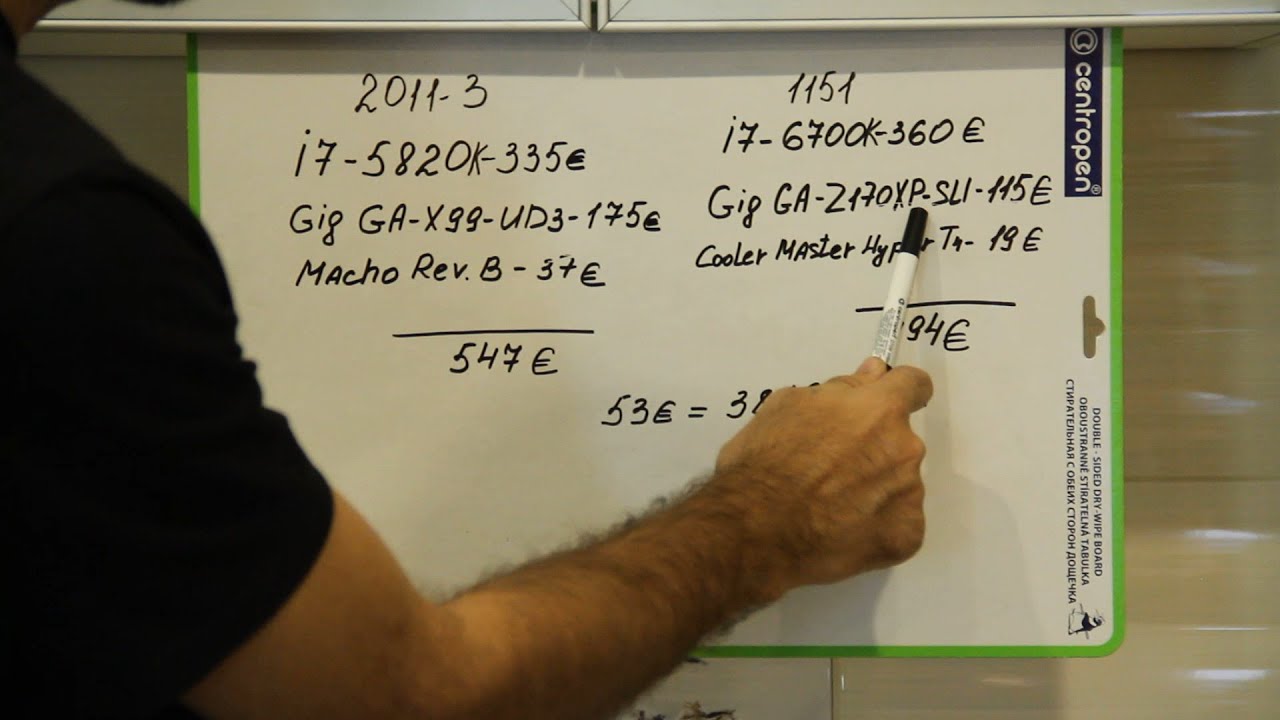 2011-3
i7-5820K-335€
Gig GA-X99-UD3-175€
Macho Rev. B - 37€
547€
1151
i7-6700K-360€
Gig GA-Z170XP-SLI-115€
Cooler Master Hyper T4- 19€
94€
53€ =
centropen®
DOUBLE - SIDED DRY-WIPE BOARD
OBOUSTRANNĚ STÍRATELNÁ TABULKA
СТИРАТЕЛЬНАЯ С ОБЕИХ СТОРОН ДОЩЕЧКА